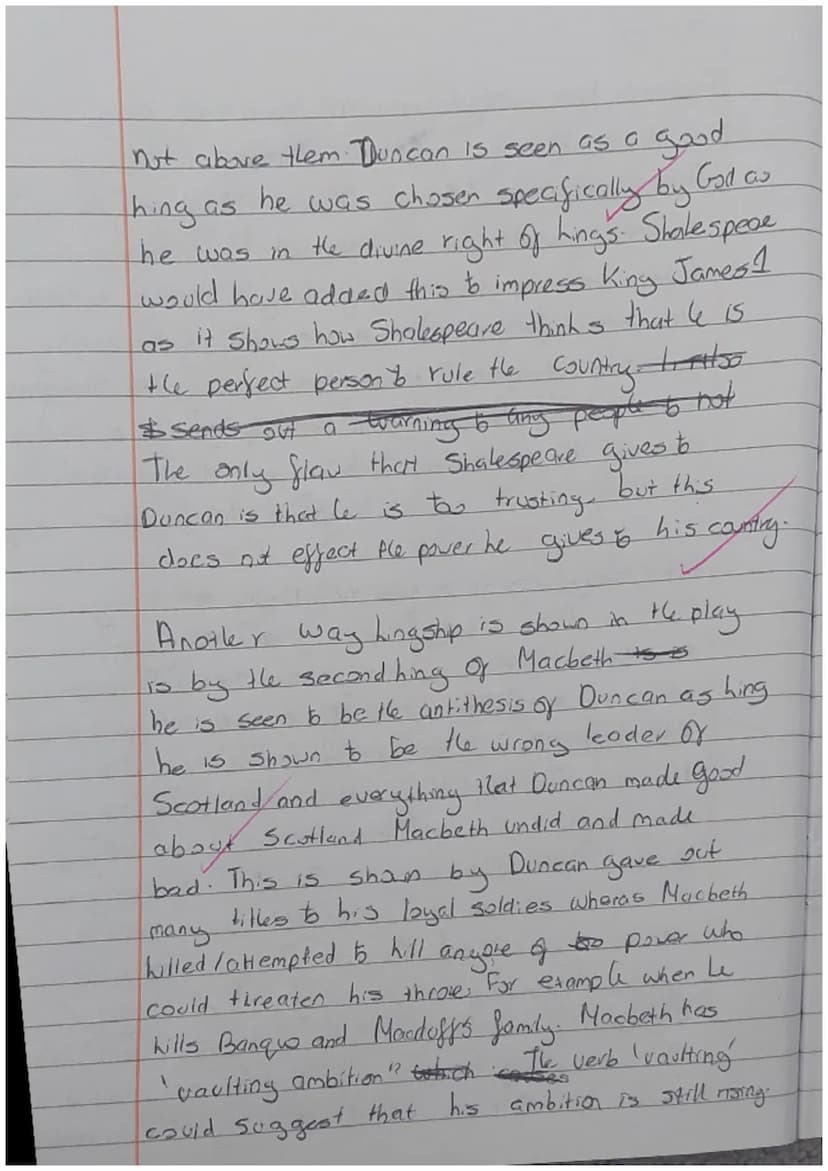 not above them. Duncan is seen as a good
king as he was chosen specifically by God as
he was in the divine right of kings. Shakespeae
would have added this to impress King James 1
as it shows how Shakespeare thinks that he is
the perfect person to rule the country. It also
sends out a warning to any people to not
The only flaw that Shakespeare gives to
Duncan is that he is too trusting, but this
does not effect the power he gives to his country.
Another way kingship is shown in the play
is by the second king of Macbeth
he is seen to be the antithesis of Duncan as king
he is shown to be the wrong leader of
Scotland and everything that Duncan made good
about Scotland Macbeth undid and made
bad. This is shan by Duncan gave out
many titles to his loyal soldies wheras Macbeth
killed/attempted to kill anyone of too power who
could threaten his throne. For example when he
kills Banquo and Macduff's family. Macbeth has
'vaulting ambition" which causes The verb 'vaulting'
could suggest that his ambition is still rising.